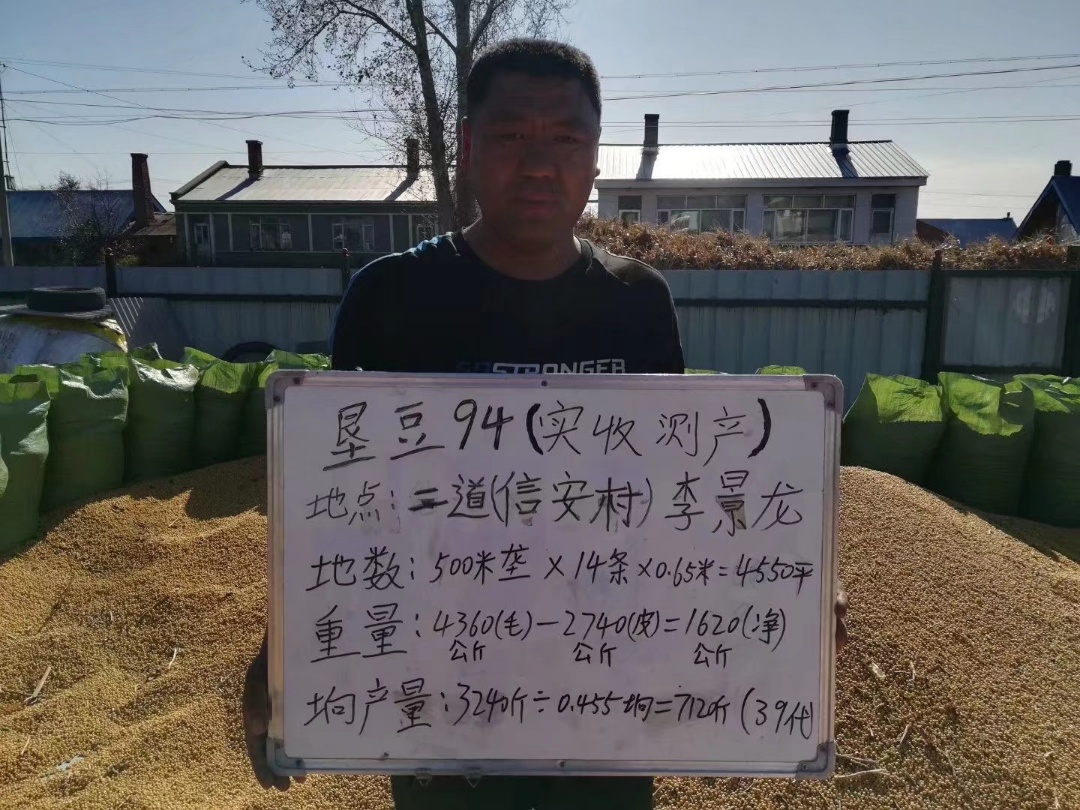 STRONGER
垦豆94(实收测产)
地点:二道(信安村)李景龙
地数:500米垄×14条×0.65米=4550平
重量:4360(毛)-2740(皮)=1620(净)
公斤 公斤 公斤
垧产量:3240斤÷0.455垧=7120斤(39代